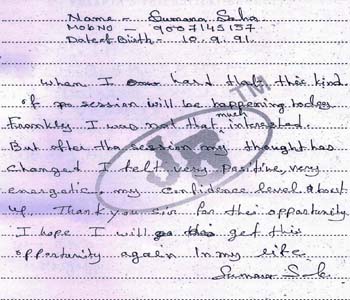 Name - Sumana Saha
Mob No - 9007145157
Date of Birth - 10.9.91.
When I hard that this kind
of session will be happening today
Frankly I was not that much interested.
But after the session my thought has
changed I felt very positive, very
energetic, my confidence level about
up. Thank you sir for this opportunity
I hope I will get this
opportunity again in my life.
TM